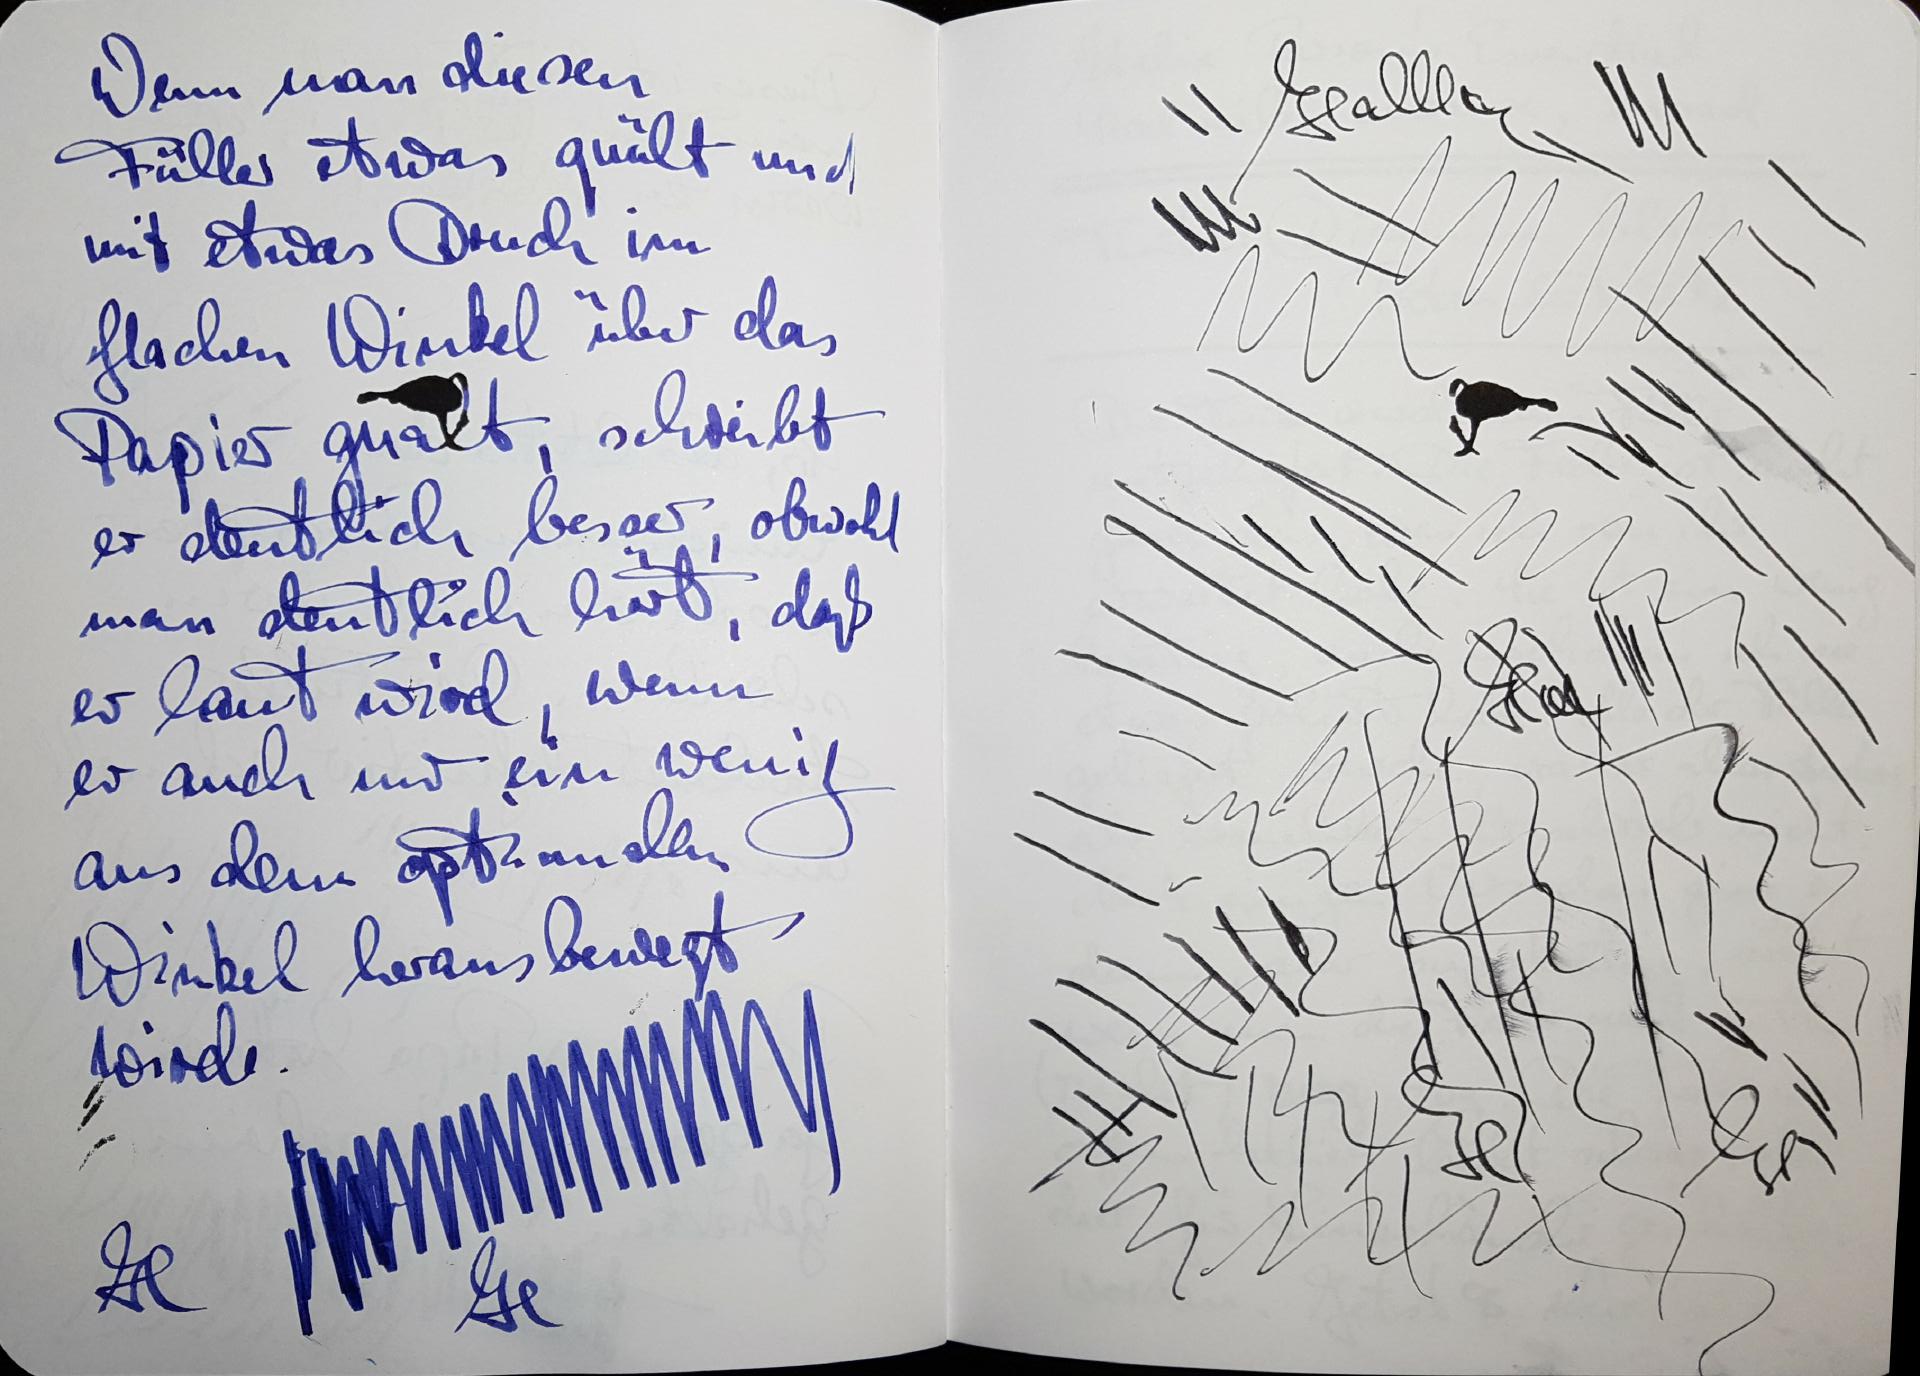 Wenn man diesen
Füller etwas quält und
mit etwas Druck im
flachen Winkel über das
Papier quält, schreibt
er deutlich besser, obwohl
man deutlich hört, daß
er laut wird, wenn
er auch nur ein wenig
aus dem optimalen
Winkel herausbewegt
wird.